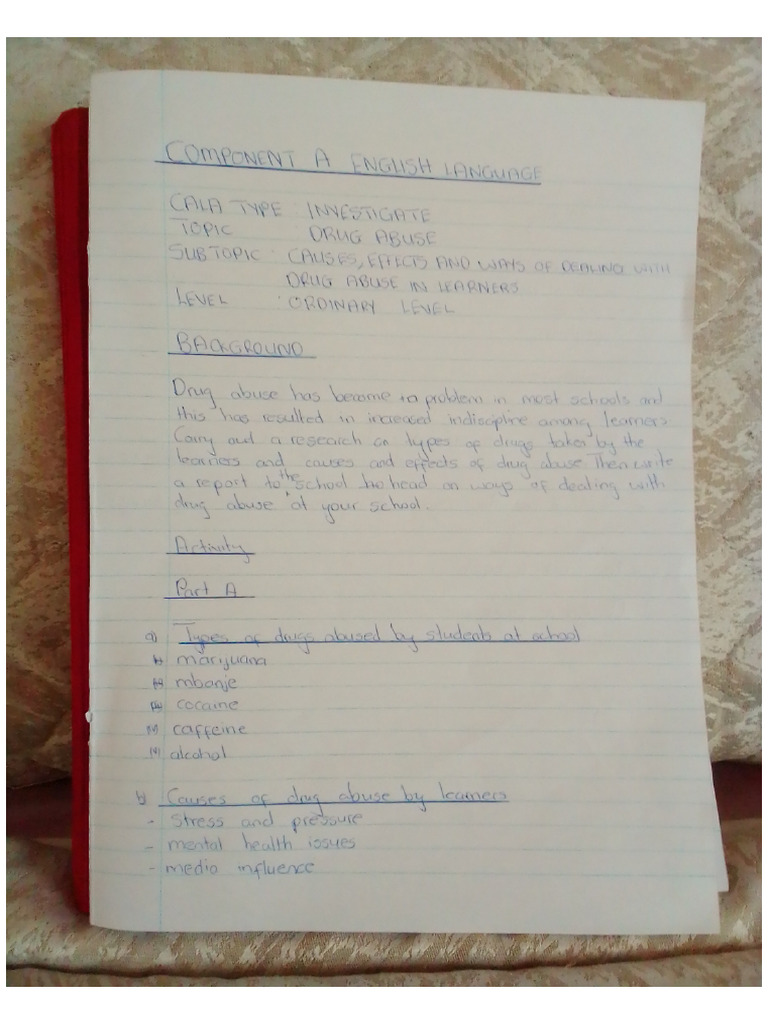 COMPONENT A ENGLISH LANGUAGE
CALA TYPE : INVESTIGATE
TOPIC DRUG ABUSE
SUBTOPIC : CAUSES, EFFECTS AND WAYS OF DEALING WITH
DRUG ABUSE IN LEARNERS
LEVEL : ORDINARY LEVEL
BACKGROUND
Drug abuse has become a problem in most schools and
this has resulted in increased indiscipline among learners
Carry out a research on types of drugs taken by the
learners and causes and effects of drug abuse Then write
a report to the school head on ways of dealing with
drug abuse at your school.
Activity
Part A
a) Types of drugs abused by students at school
marijuana
mbanje
cocaine
caffeine
alcohol
b) Causes of drug abuse by learners
- Stress and pressure
- mental health issues
- media influence